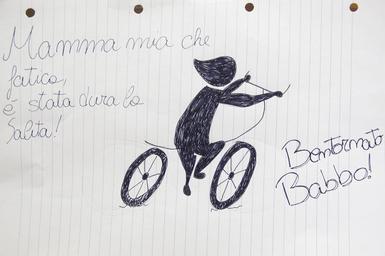 Mamma mia che
fatica,
è stata dura la
Salita!
Bentornato
Babbo!